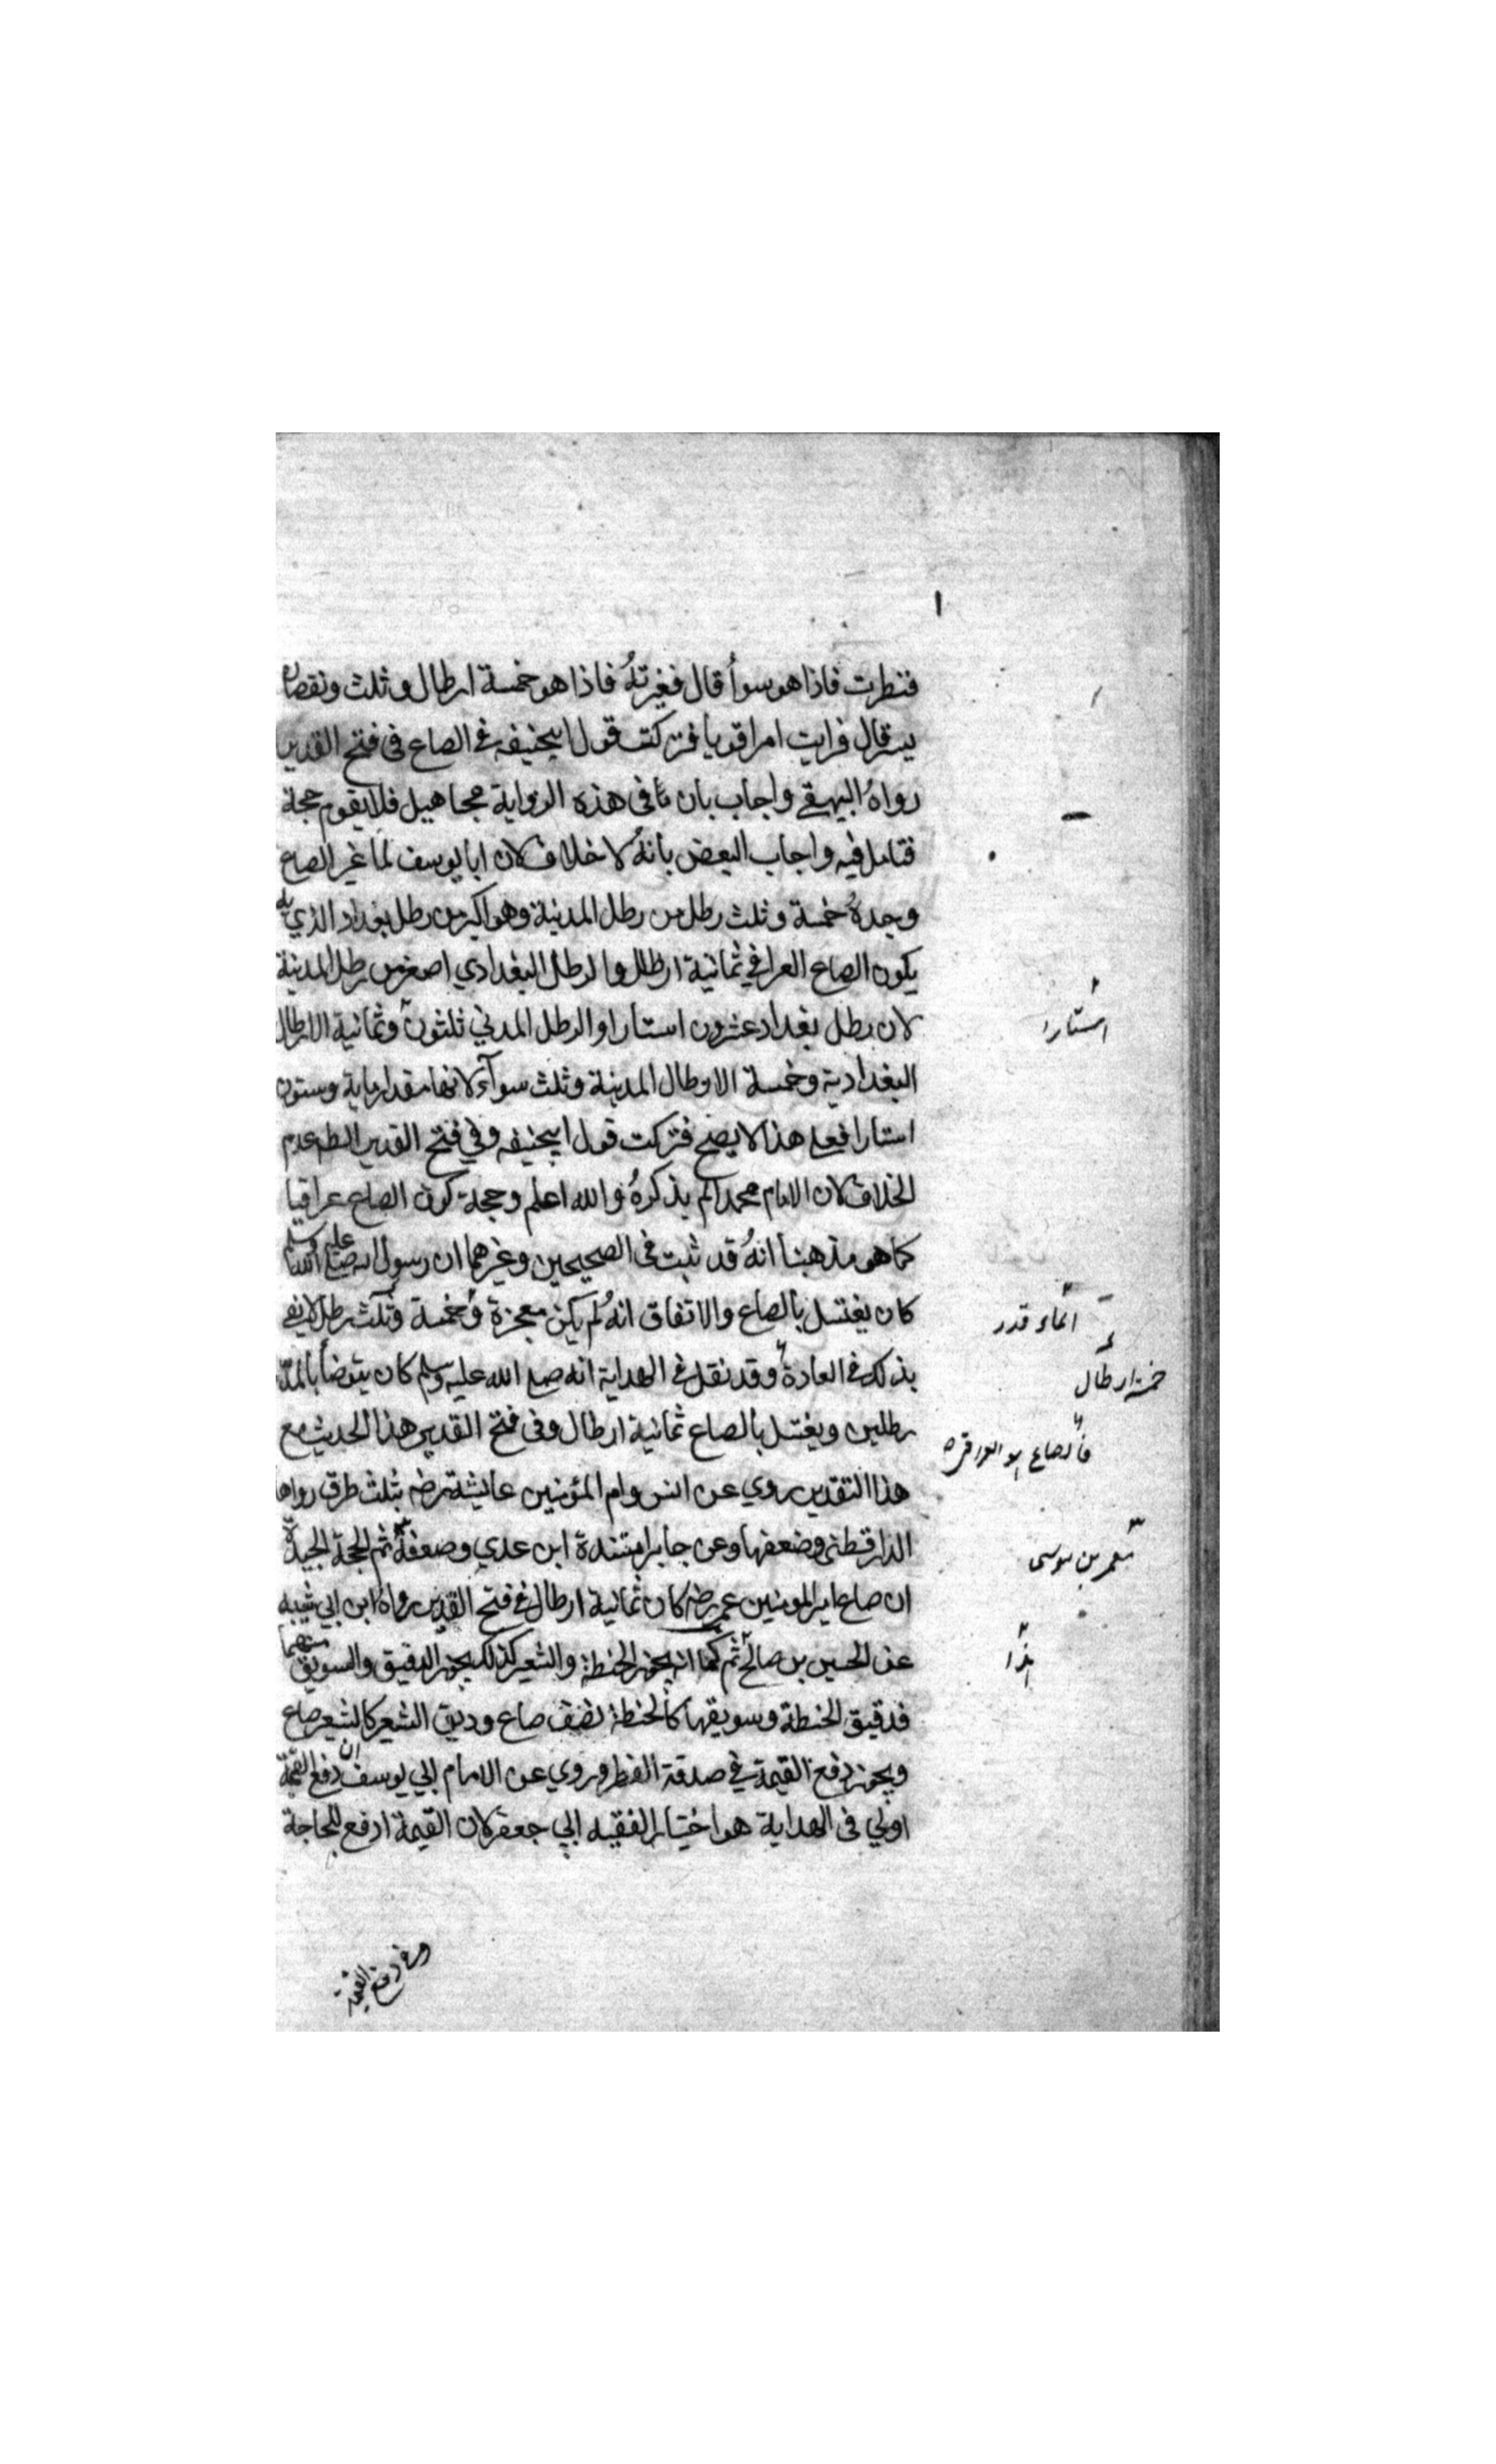 فنظرت فاذا هو سوأ قال فغيرته فاذا هو خمسة ارطال وثلث ونقصان
يسير قال فرايت امرا قويا فتركت قول ابيحنيفه في الصاع في فتح القدير
رواه البيهقي واجاب بان ما في هذه الرواية مجاهيل فلا يقوم حجة
فتامل فيه واجاب البعض بانه لا خلاف لان ابا يوسف لما غير الصاع
وجده خمسة وثلث رطل من رطل المدينة وهو اكبر من رطل بغداد الذي به
يكون الصاع العراقي ثمانية ارطال والرطل البغدادي اصغر من رطل المدينة
لان رطل بغداد عشرون استارا والرطل المدني ثلثون وثمانية الارطال
البغدادية وخمسة الارطال المدينة وثلث سوآء لانها مقدار ماية وستون
استارا فعلى هذا لا يصح فتركت قول ابيحنيفه وفي فتح القدير الظم عدم
الخلاف لان الامام محمدا لم يذكره والله اعلم وحجة كون الصاع عراقيا
كما هو مذهبنا انه قد ثبت في الصحيحين وغيرهما ان رسول الله صلى الله عليه وسلم
كان يغتسل بالصاع والاتفاق انه لم يكن معجزة وخمسة وثلث رطل لا يفي
بذلك في العادة وقد نقل في الهداية انه صلى الله عليه وسلم كان يتوضأ بالمد
رطلين ويغتسل بالصاع ثمانية ارطال وفي فتح القدير هذا الحديث مع
هذا التقدير روي عن انس وام المؤمنين عايشة رضه بثلث طرق رواها
الدارقطني وضعفها وعن جابر اسنده ابن عدي وضعفه ثم الحجة الجيدة
ان صاع امير المومنين عمر رضه كان ثمانية ارطال في فتح القدير رواه ابن ابي شيبه
عن الحسين بن صالح ثم كما انه يجوز الحنطة والشعير كذلك يجوز الدقيق والسويق منهما
فدقيق الحنطة وسويقها كالحنطة نصف صاع ودقيق الشعير كالشعير صاع
ويجوز دفع القيمة في صدقة الفطر وروي عن الامام ابي يوسف ان دفع القيمة
اولي في الهداية هو اختيار الفقيه ابي جعفر لان القيمة ادفع للحاجة
استارا
الماء قدر
خمسة ارطال
فالصاع هو العراقي
معمر بن موسى
هذا
وفي دفع القيمة